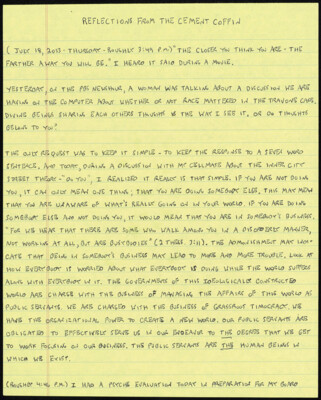 REFLECTIONS FROM THE CEMENT COFFIN
(JULY 18, 2013 - THURSDAY - ROUGHLY 3:44 P.M.) "THE CLOSER YOU THINK YOU ARE - THE
FARTHER AWAY YOU WILL BE." I HEARD IT SAID DURING A MOVIE.
YESTERDAY, ON THE PBS NEWSHOUR, A WOMAN WAS TALKING ABOUT A DISCUSSION WE ARE
HAVING ON THE COMPUTER ABOUT WHETHER OR NOT RACE MATTERED IN THE TRAYVON CASE.
DIVINE BEINGS SHARING EACH OTHERS THOUGHTS IS THE WAY I SEE IT, OR DO THOUGHTS
BELONG TO YOU?
THE ONLY REQUEST WAS TO KEEP IT SIMPLE - TO KEEP THE RESPONSE TO A SEVEN WORD
SENTENCE. AND TODAY, DURING A DISCUSSION WITH MY CELLMATE ABOUT THE INNER CITY
STREET THEORY - "DO YOU", I REALIZED IT REALLY IS THAT SIMPLE. IF YOU ARE NOT DOING
YOU, IT CAN ONLY MEAN ONE THING; THAT YOU ARE DOING SOMEBODY ELSE, THIS MAY MEAN
THAT YOU ARE UNAWARE OF WHAT'S REALLY GOING ON IN YOUR WORLD. IF YOU ARE DOING
SOMEBODY ELSE AND NOT DOING YOU, IT WOULD MEAN THAT YOU ARE IN SOMEBODY'S BUSINESS.
"FOR WE HEAR THAT THERE ARE SOME WHO WALK AMONG YOU IN A DISORDERLY MANNER,
NOT WORKING AT ALL, BUT ARE BUSYBODIES" (2 THESS. 3:11). THE ADMONISHMENT MAY INDI-
CATE THAT BEING IN SOMEBODY'S BUSINESS MAY LEAD TO MORE AND MORE TROUBLE. LOOK AT
HOW EVERYBODY IS WORRIED ABOUT WHAT EVERYBODY IS DOING WHILE THE WORLD SUFFERS
ALONG WITH EVERYBODY IN IT. THE GOVERNMENTS OF THIS IDEOLOGICALLY CONSTRUCTED
WORLD ARE CHARGE WITH THE BUSINESS OF MANAGING THE AFFAIRS OF THE WORLD AS
PUBLIC SERVANTS. WE ARE CHARGED WITH THE BUSINESS OF GRASSROOT TIMOCRACY. WE
HAVE THE ORGANIZATIONAL POWER TO CREATE A NEW WORLD. OUR PUBLIC SERVANTS ARE
OBLIGATED TO EFFECTIVELY SERVE US IN OUR ENDEAVOR TO THE DEGREE THAT WE GET
TO WORK FOCUSING ON OUR BUSINESS. THE PUBLIC SERVANTS ARE THE HUMAN BEING IN
WHICH WE EXIST.
(ROUGHLY 4:46 P.M.) I HAD A PSYCHE EVALUATION TODAY IN PREPARATION FOR MY BOARD